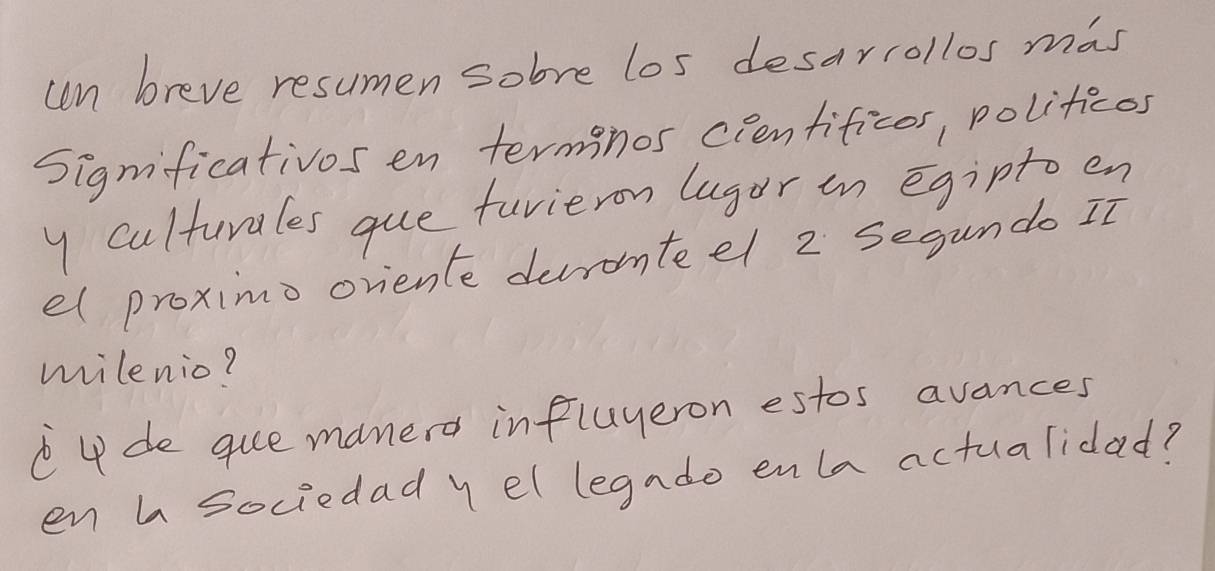 un breve resumen sobre los desarrollos más
significativos en terminos cientificos, politicos
y culturales que tuvieron lugar en Egipto en
el proximo oriente durante el 2 segundo II
milenio?
¿y de que manera influyeron estos avances
en la sociedad y el legado en la actualidad?